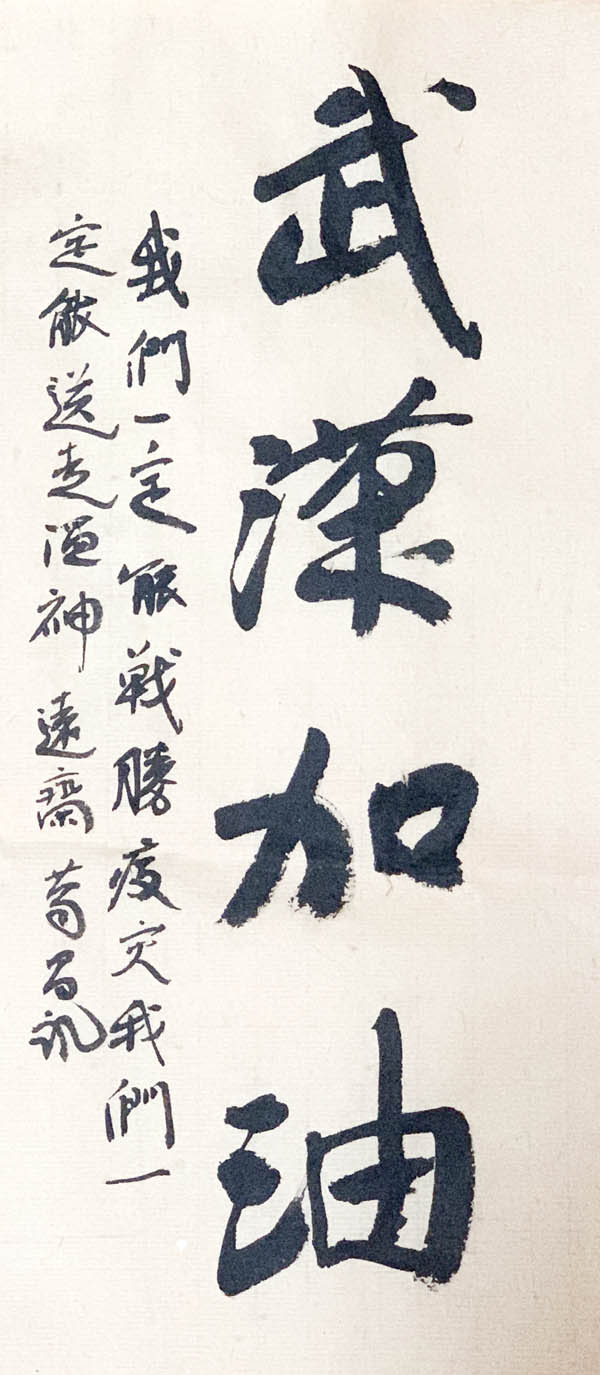 武漢加油
我們一定能戰勝疫灾我們一
定能送走瘟神 遠齋 苟君